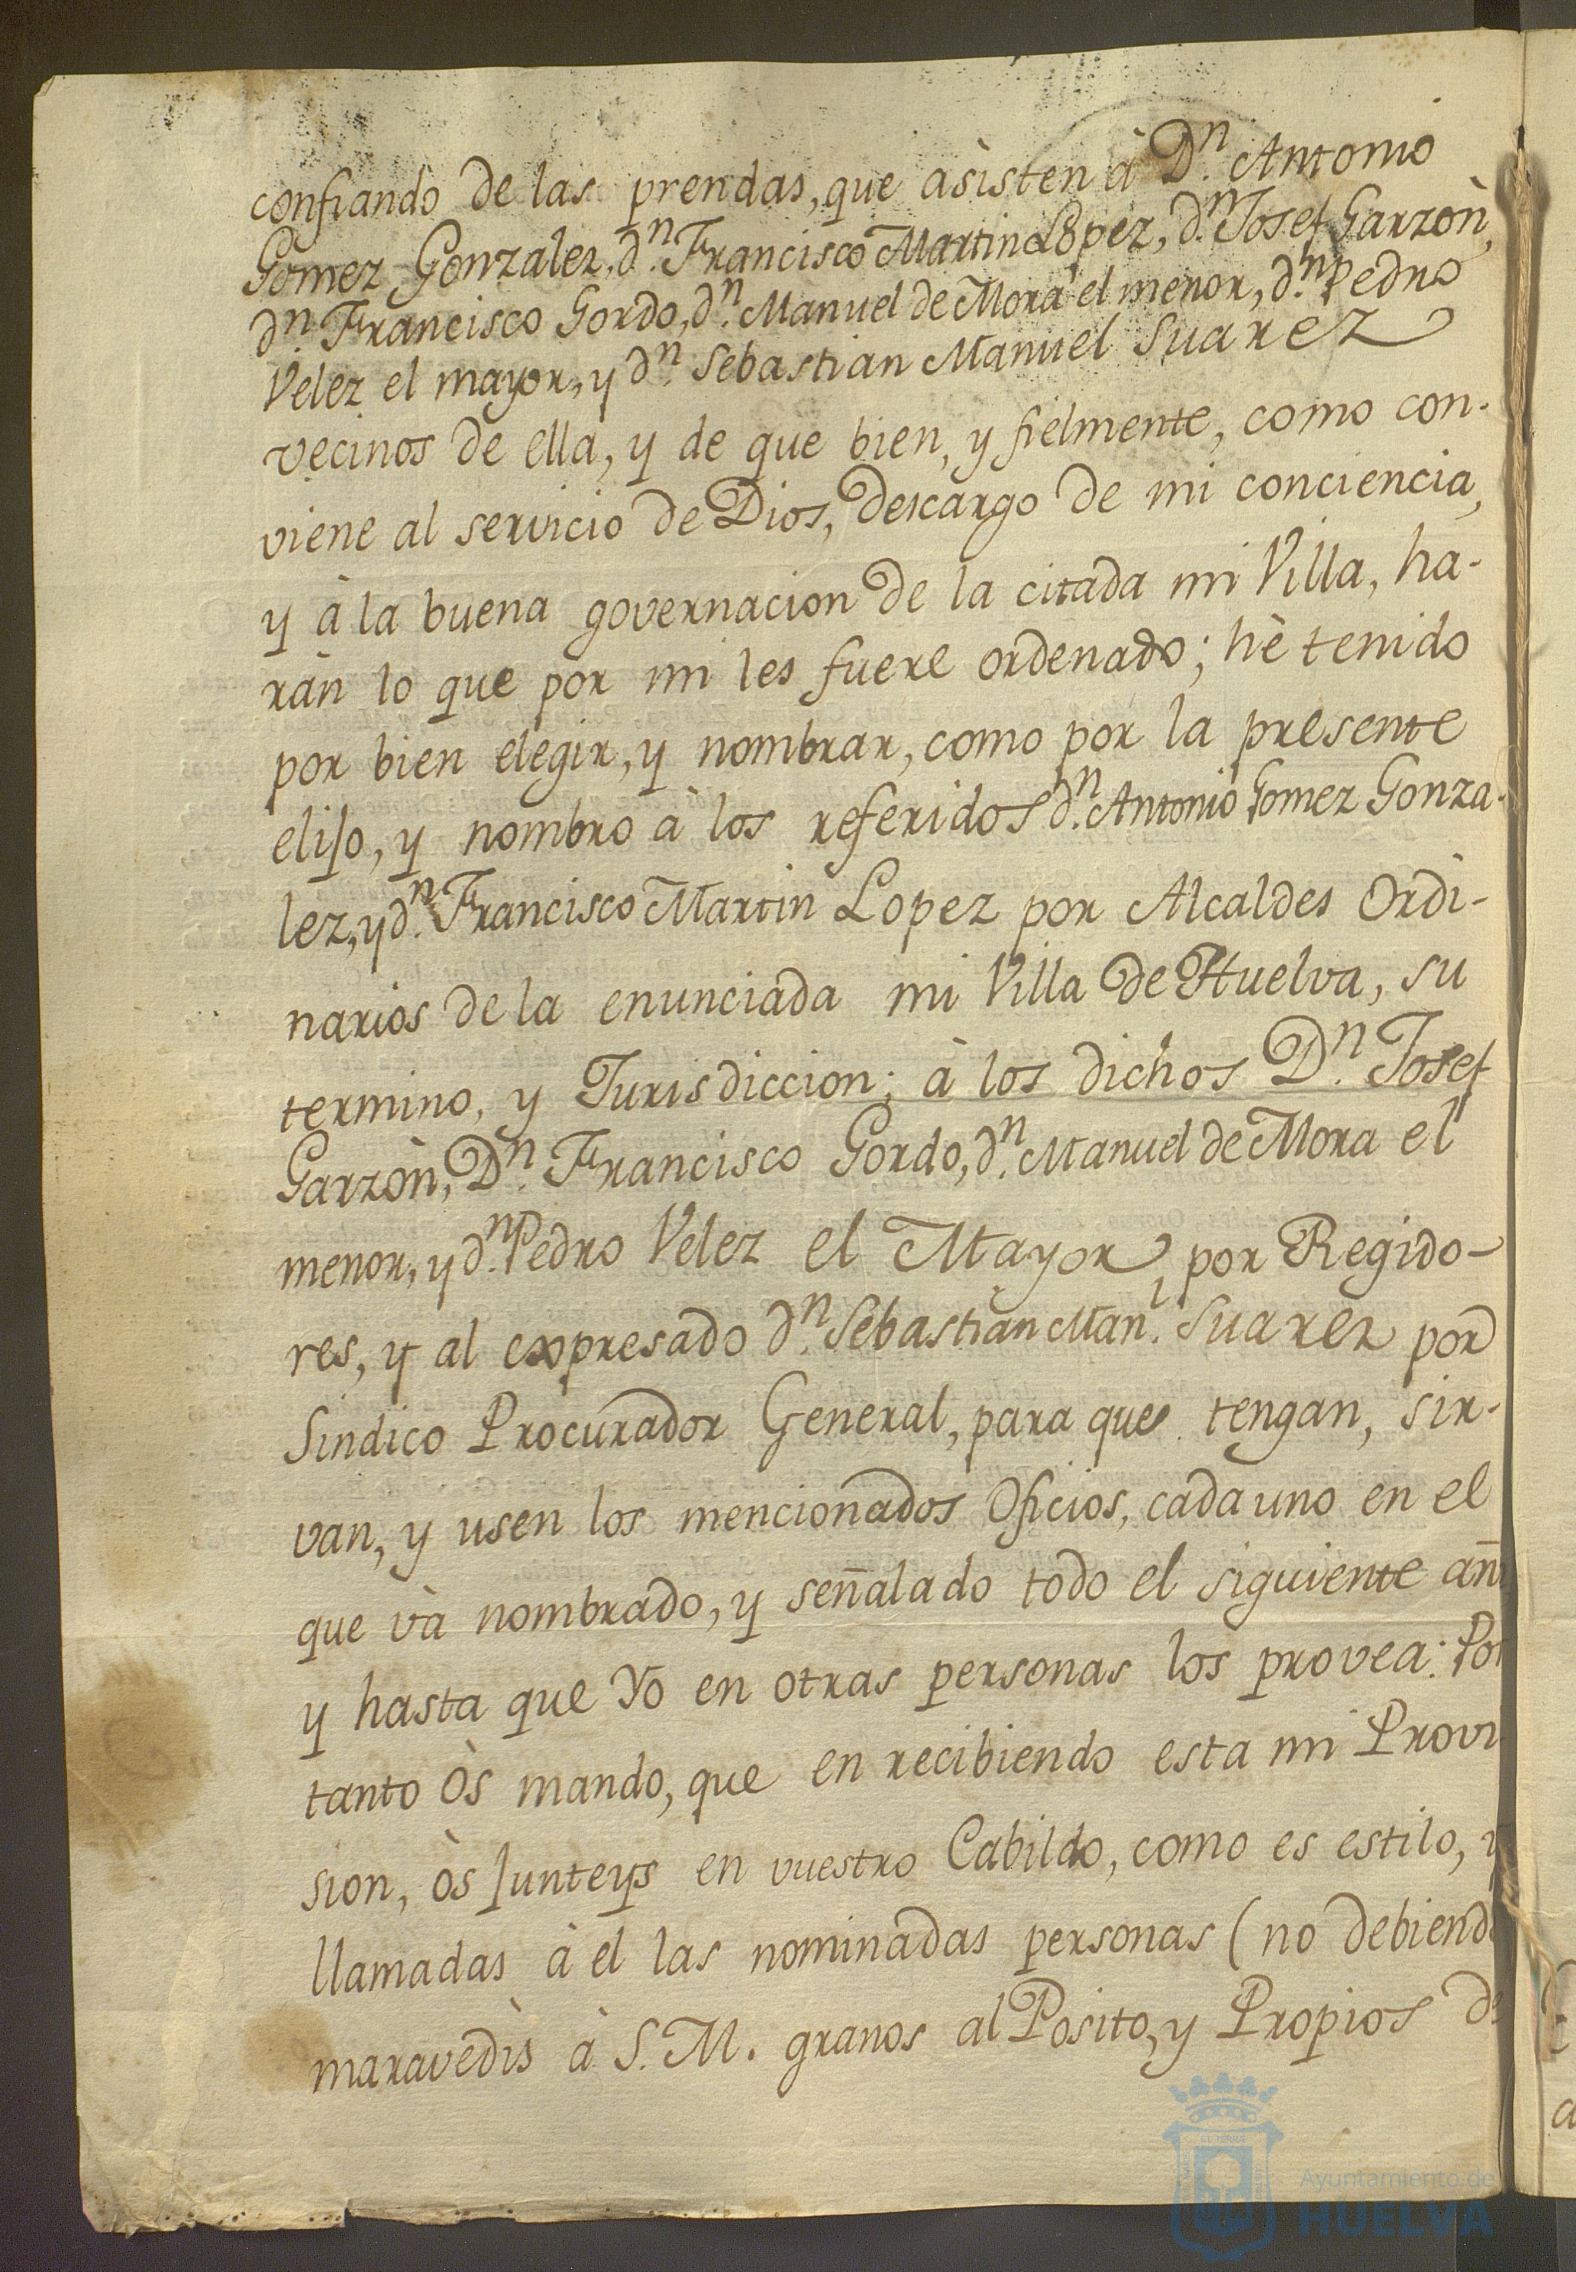 confiando de las prendas, que asisten à Dn. Antonio
Gomez Gonzalez, dn. Francisco Martin Lopez, dn. Josef Garzòn,
dn. Francisco Gordo, dn. Manuel de Mora el menor, dn. Pedro
Velez el mayor, y dn. Sebastian Manuel Suarez
vecinos de ella, y de que bien, y fielmente, como con-
viene al servicio de Dios, descargo de mi conciencia,
y à la buena governacion de la citada mi Villa, ha-
ràn lo que por mi les fuere ordenado; hè tenido
por bien elegir, y nombrar, como por la presente
elijo, y nombro à los referidos dn. Antonio Gomez Gonza-
lez, y dn. Francisco Martin Lopez por Alcaldes Ordi-
narios de la enunciada mi Villa de Huelva, su
termino, y Jurisdiccion; à los dichos Dn. Josef
Garzòn, Dn. Francisco Gordo, dn. Manuel de Mora el
menor, y dn. Pedro Velez el Mayor, por Regido-
res, y al expresado dn. Sebastian Manl. Suarez por
Sindico Procurador General, para que tengan, sir-
van, y usen los mencionados Oficios, cada uno en el
que và nombrado, y señalado todo el siguiente añ
y hasta que Yo en otras personas los provea: Por
tanto Òs mando, que en recibiendo esta mi Provi
sion, òs Junteys en vuestro Cabildo, como es estilo, y
llamadas à el las nominadas personas (no debiendo
maravedìs à S. M. granos al Posito, y Propios de
Ayuntamiento de
HUELVA